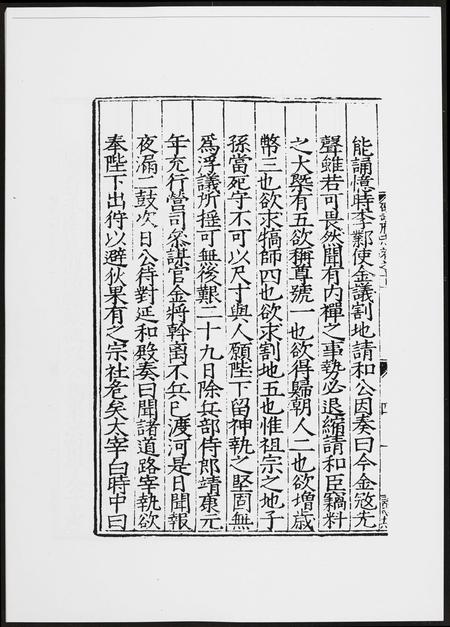 能誦憶時李鄴使金議割地請和公因奏曰今金宼先
聲雖若可畏然聞有内禪之事勢必退縮請和臣竊料
之大槩有五欲稱尊號一也欲得歸朝人二也欲增歲
幣三也欲求犒師四也欲求割地五也惟祖宗之地子
孫當死守不可以尺寸與人願陛下留神執之堅固無
爲浮議所揺可無後艱二十九日除兵部侍郎靖康元
年充行營司叅謀官金將斡离不兵已渡河是日聞報
夜漏二鼓次日公待對延和殿奏曰聞諸道路宰執欲
奉陛下出狩以避狄果有之宗社危矣太宰白時中曰